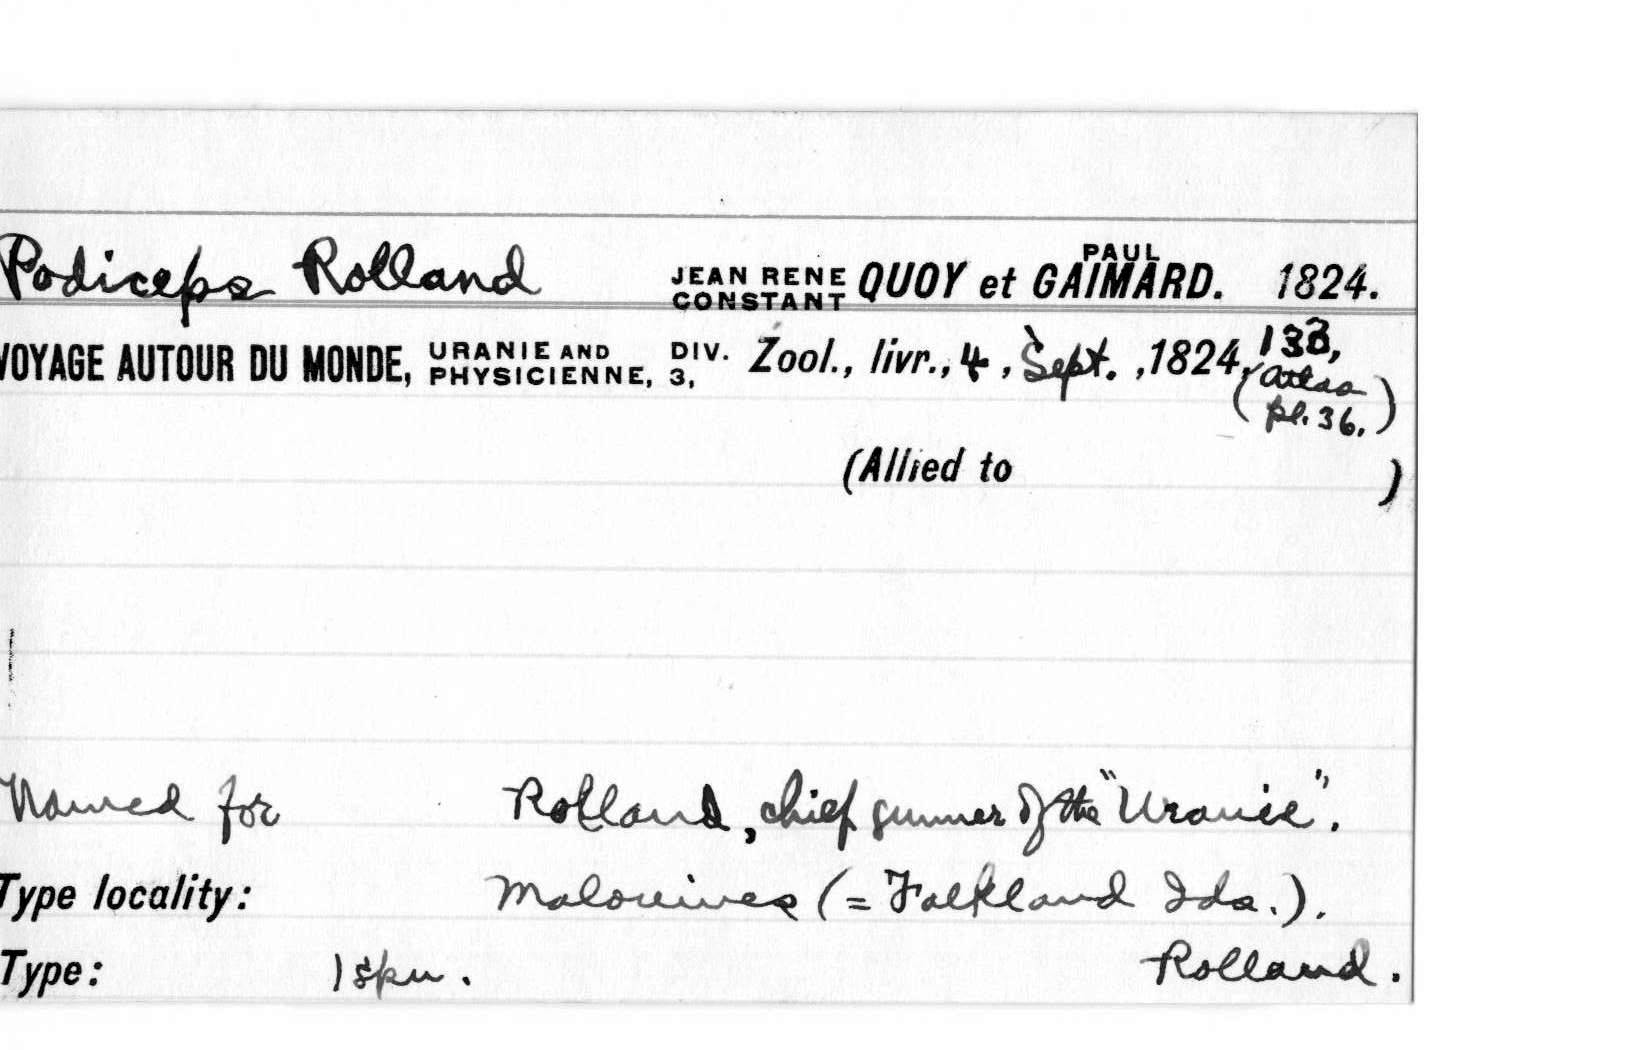 Podiceps Rolland JEAN RENE CONSTANT QUOY et PAUL GAIMARD. 1824.
VOYAGE AUTOUR DU MONDE, URANIE AND PHYSICIENNE, DIV. 3, Zool., livr., 4, Sept. ,1824, 133,
(Atlas
pl. 36.)
(Allied to )
Named for Rolland, chief gunner of the "Uranie".
Type locality: Malouines (= Falkland Ids.).
Type: 1 spn. Rolland.